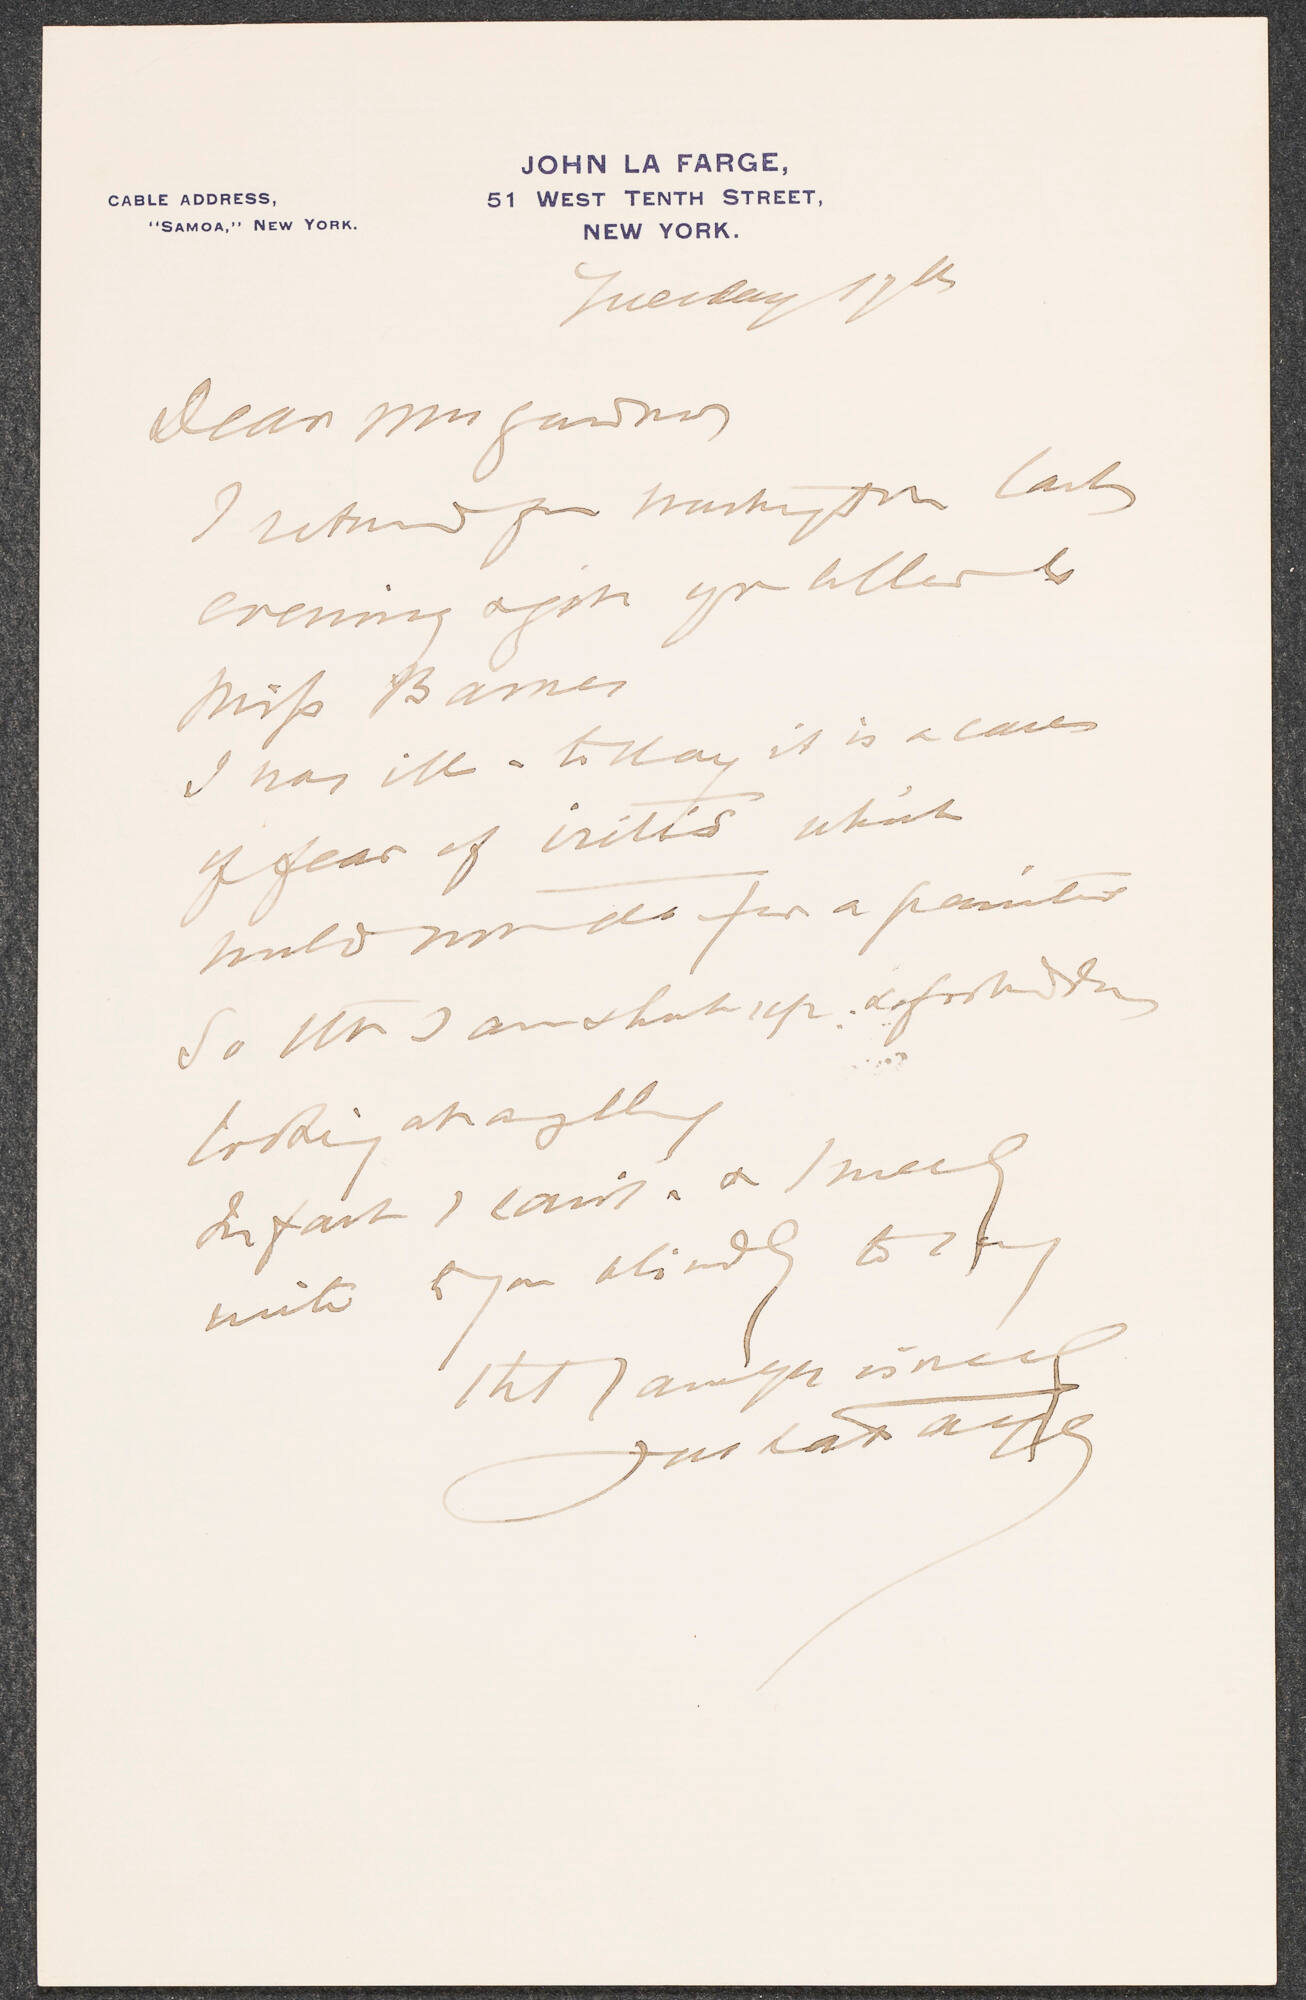 JOHN LA FARGE,
51 WEST TENTH STREET,
NEW YORK.
CABLE ADDRESS,
"SAMOA," NEW YORK.
Tuesday 17th
Dear Mrs Gardner
I returned from Washington last
evening & got yr letter to
Miss Barnes
I was ill - today it is a case
of fear of iritis which
would not do for a painter
So tht I am shut up & forbidden
looking at anything
In fact I can't. & I merely
write to you blindly to say
tht I am yrs sincerely
Jno La Farge